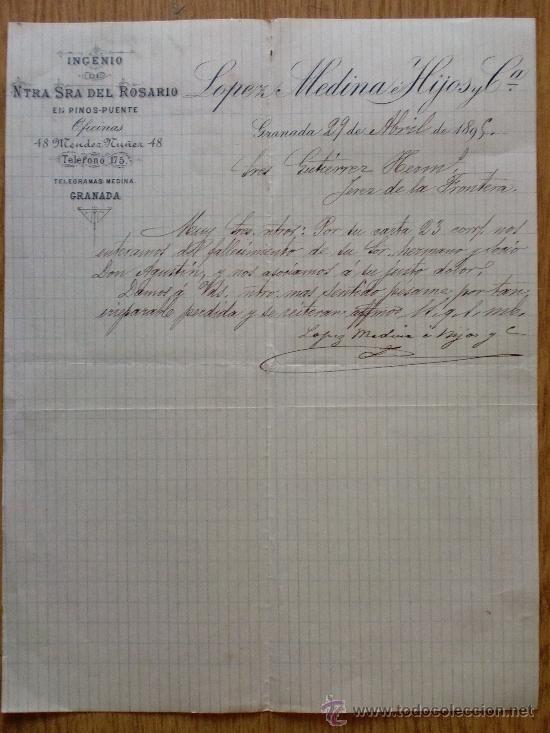 INGENIO
DE
NTRA SRA DEL ROSARIO
EN PINOS-PUENTE
Oficinas
48 Mendez Nuñez 48
Telefono 175
TELEGRAMAS MEDINA
GRANADA
Lopez Medina é Hijos y Cª
Granada 29 de Abril de 1895.
Sres Gutiérrez Herms
Jerez de la Frontera.
Muy Sres. ntros: Por su carta 23 corrte nos
enteramos del fallecimiento de su Sor. hermano y socio
Don Agustín, y nos asociamos á su justo dolor.
Damos á Vds. ntro. mas sentido pésame por tan
irreparable perdida y se reiteran affmos.
Lopez Medina é Hijos y C
www.todocoleccion.net